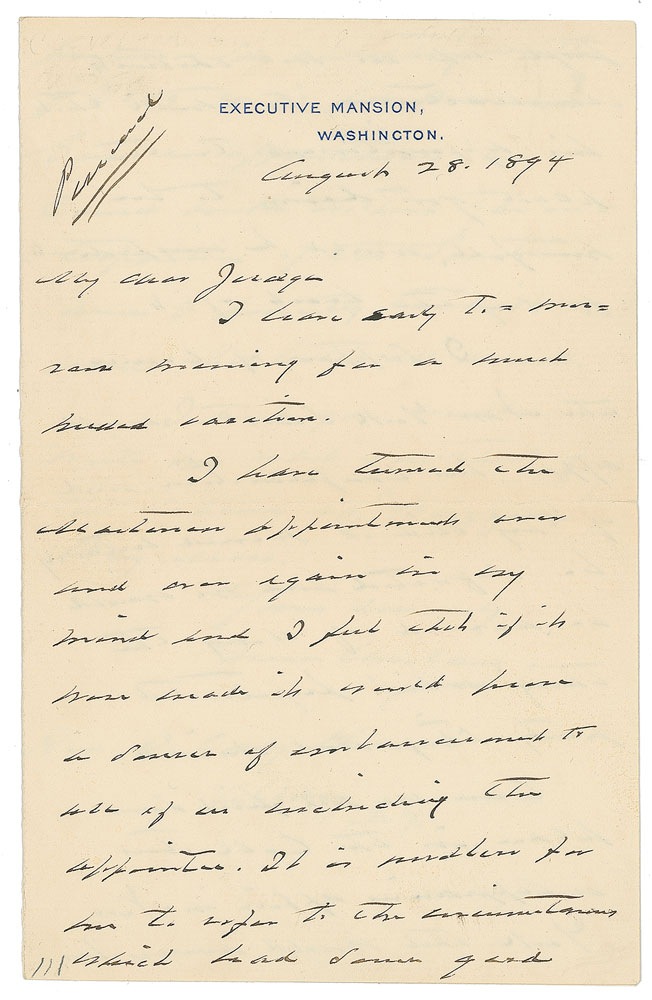 EXECUTIVE MANSION,
WASHINGTON.
Personal
August 28. 1894
My dear Judge
I leave early to=mor=
row morning for a much
needed vacation.
I have turned the
appointment over
and over again in my
mind and I feel that if it
were made it would prove
a source of embarrassment to
all of us including the
appointee. It is needless for
me to refer to the circumstances
which lead some good